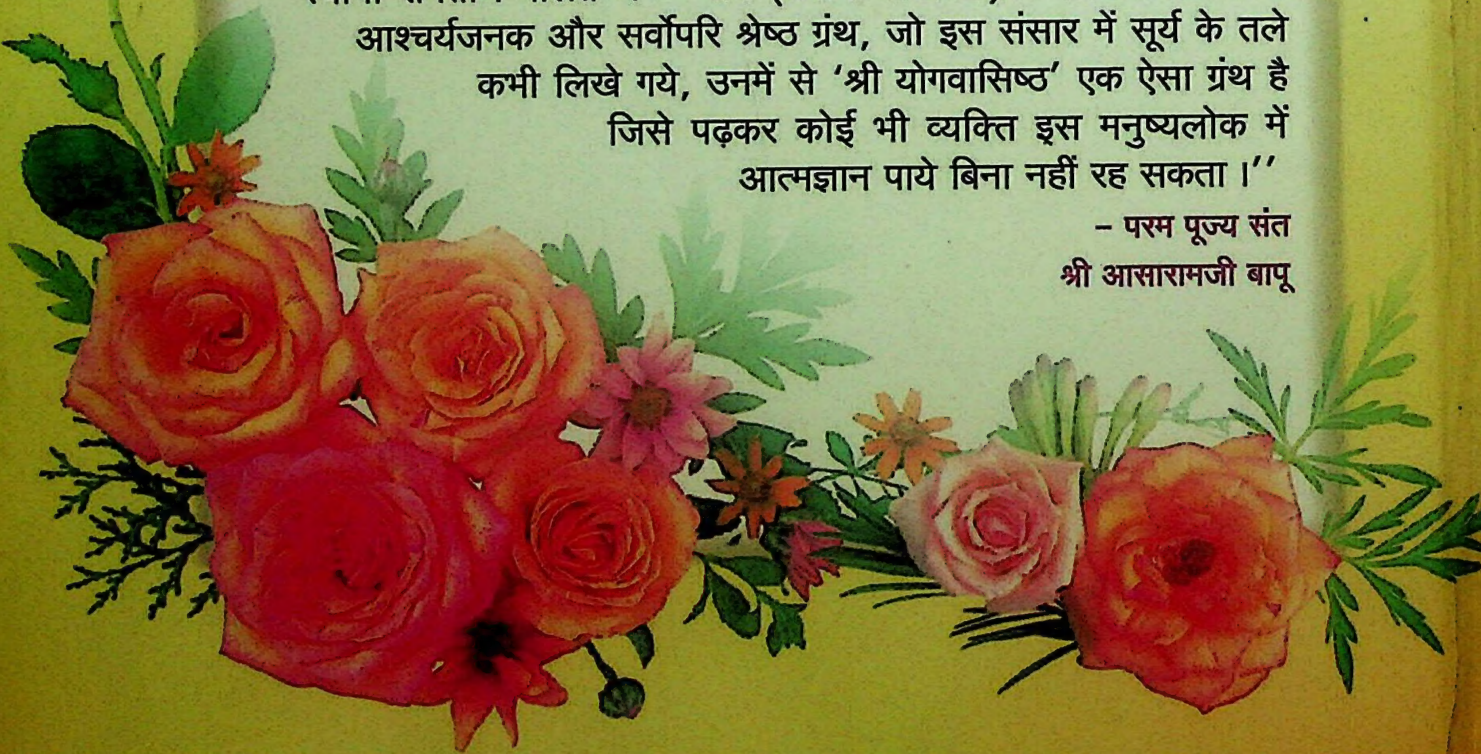 आश्चर्यजनक और सर्वोपरि श्रेष्ठ ग्रंथ, जो इस संसार में सूर्य के तले
कभी लिखे गये, उनमें से ‘श्री योगवासिष्ठ’ एक ऐसा ग्रंथ है
जिसे पढ़कर कोई भी व्यक्ति इस मनुष्यलोक में
आत्मज्ञान पाये बिना नहीं रह सकता ।’’
– परम पूज्य संत
श्री आसारामजी बापू